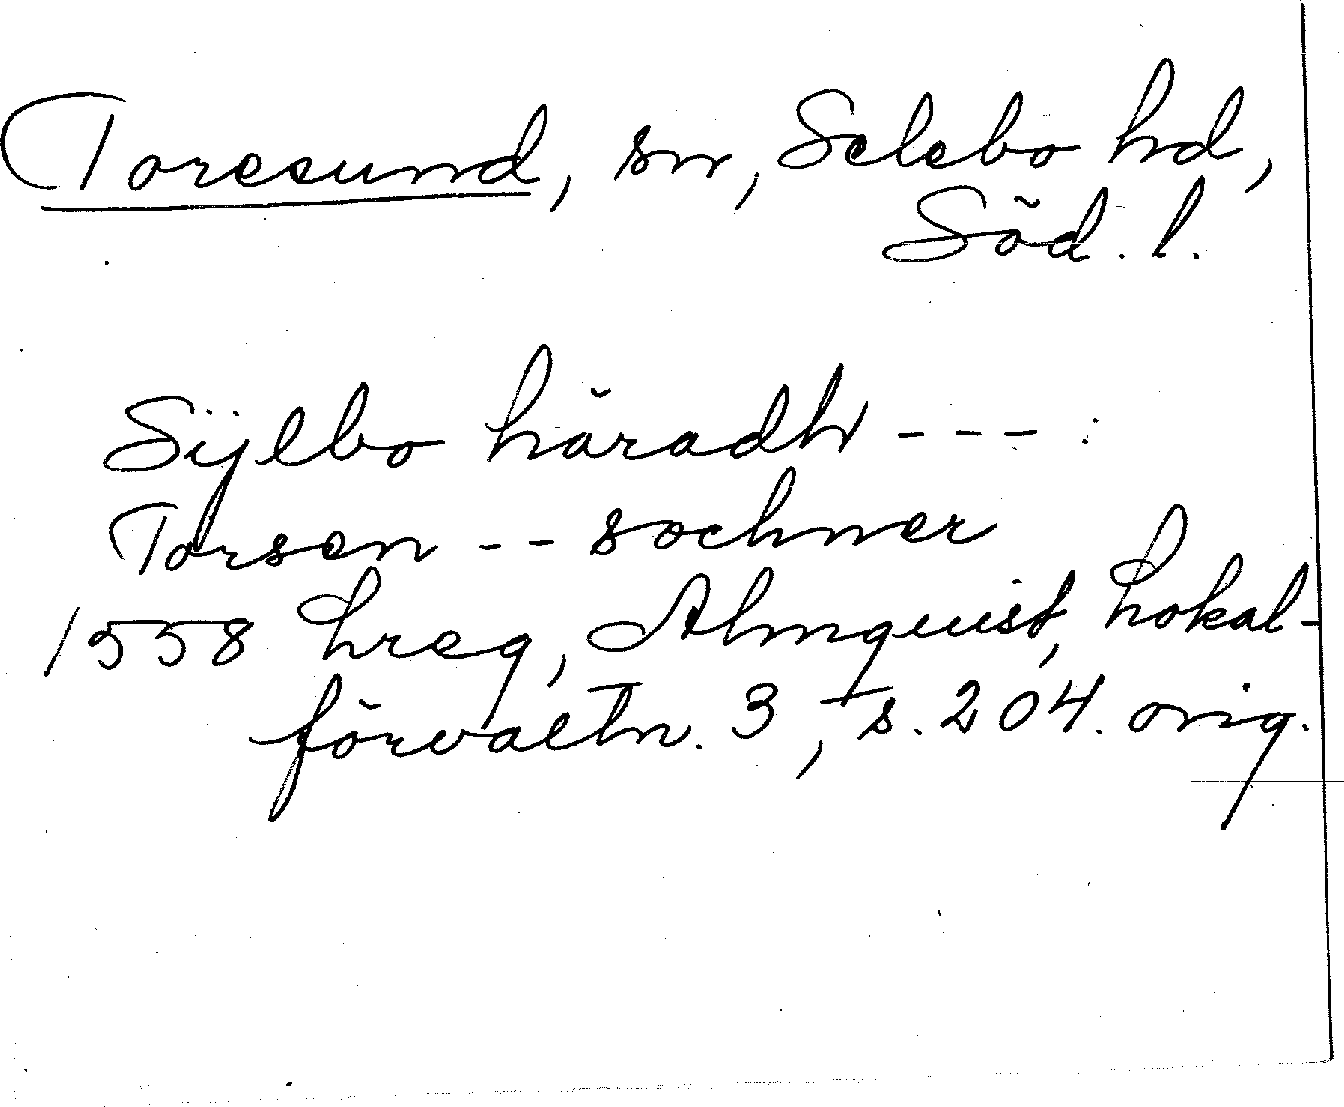 Toresund, sn, Selebo hd,
Söd. l.
Sÿlbo häradh --- :
Torsen -- sochner
1558 hreg, Almquist, Lokal-
förvaltn. 3, s. 204. orig.